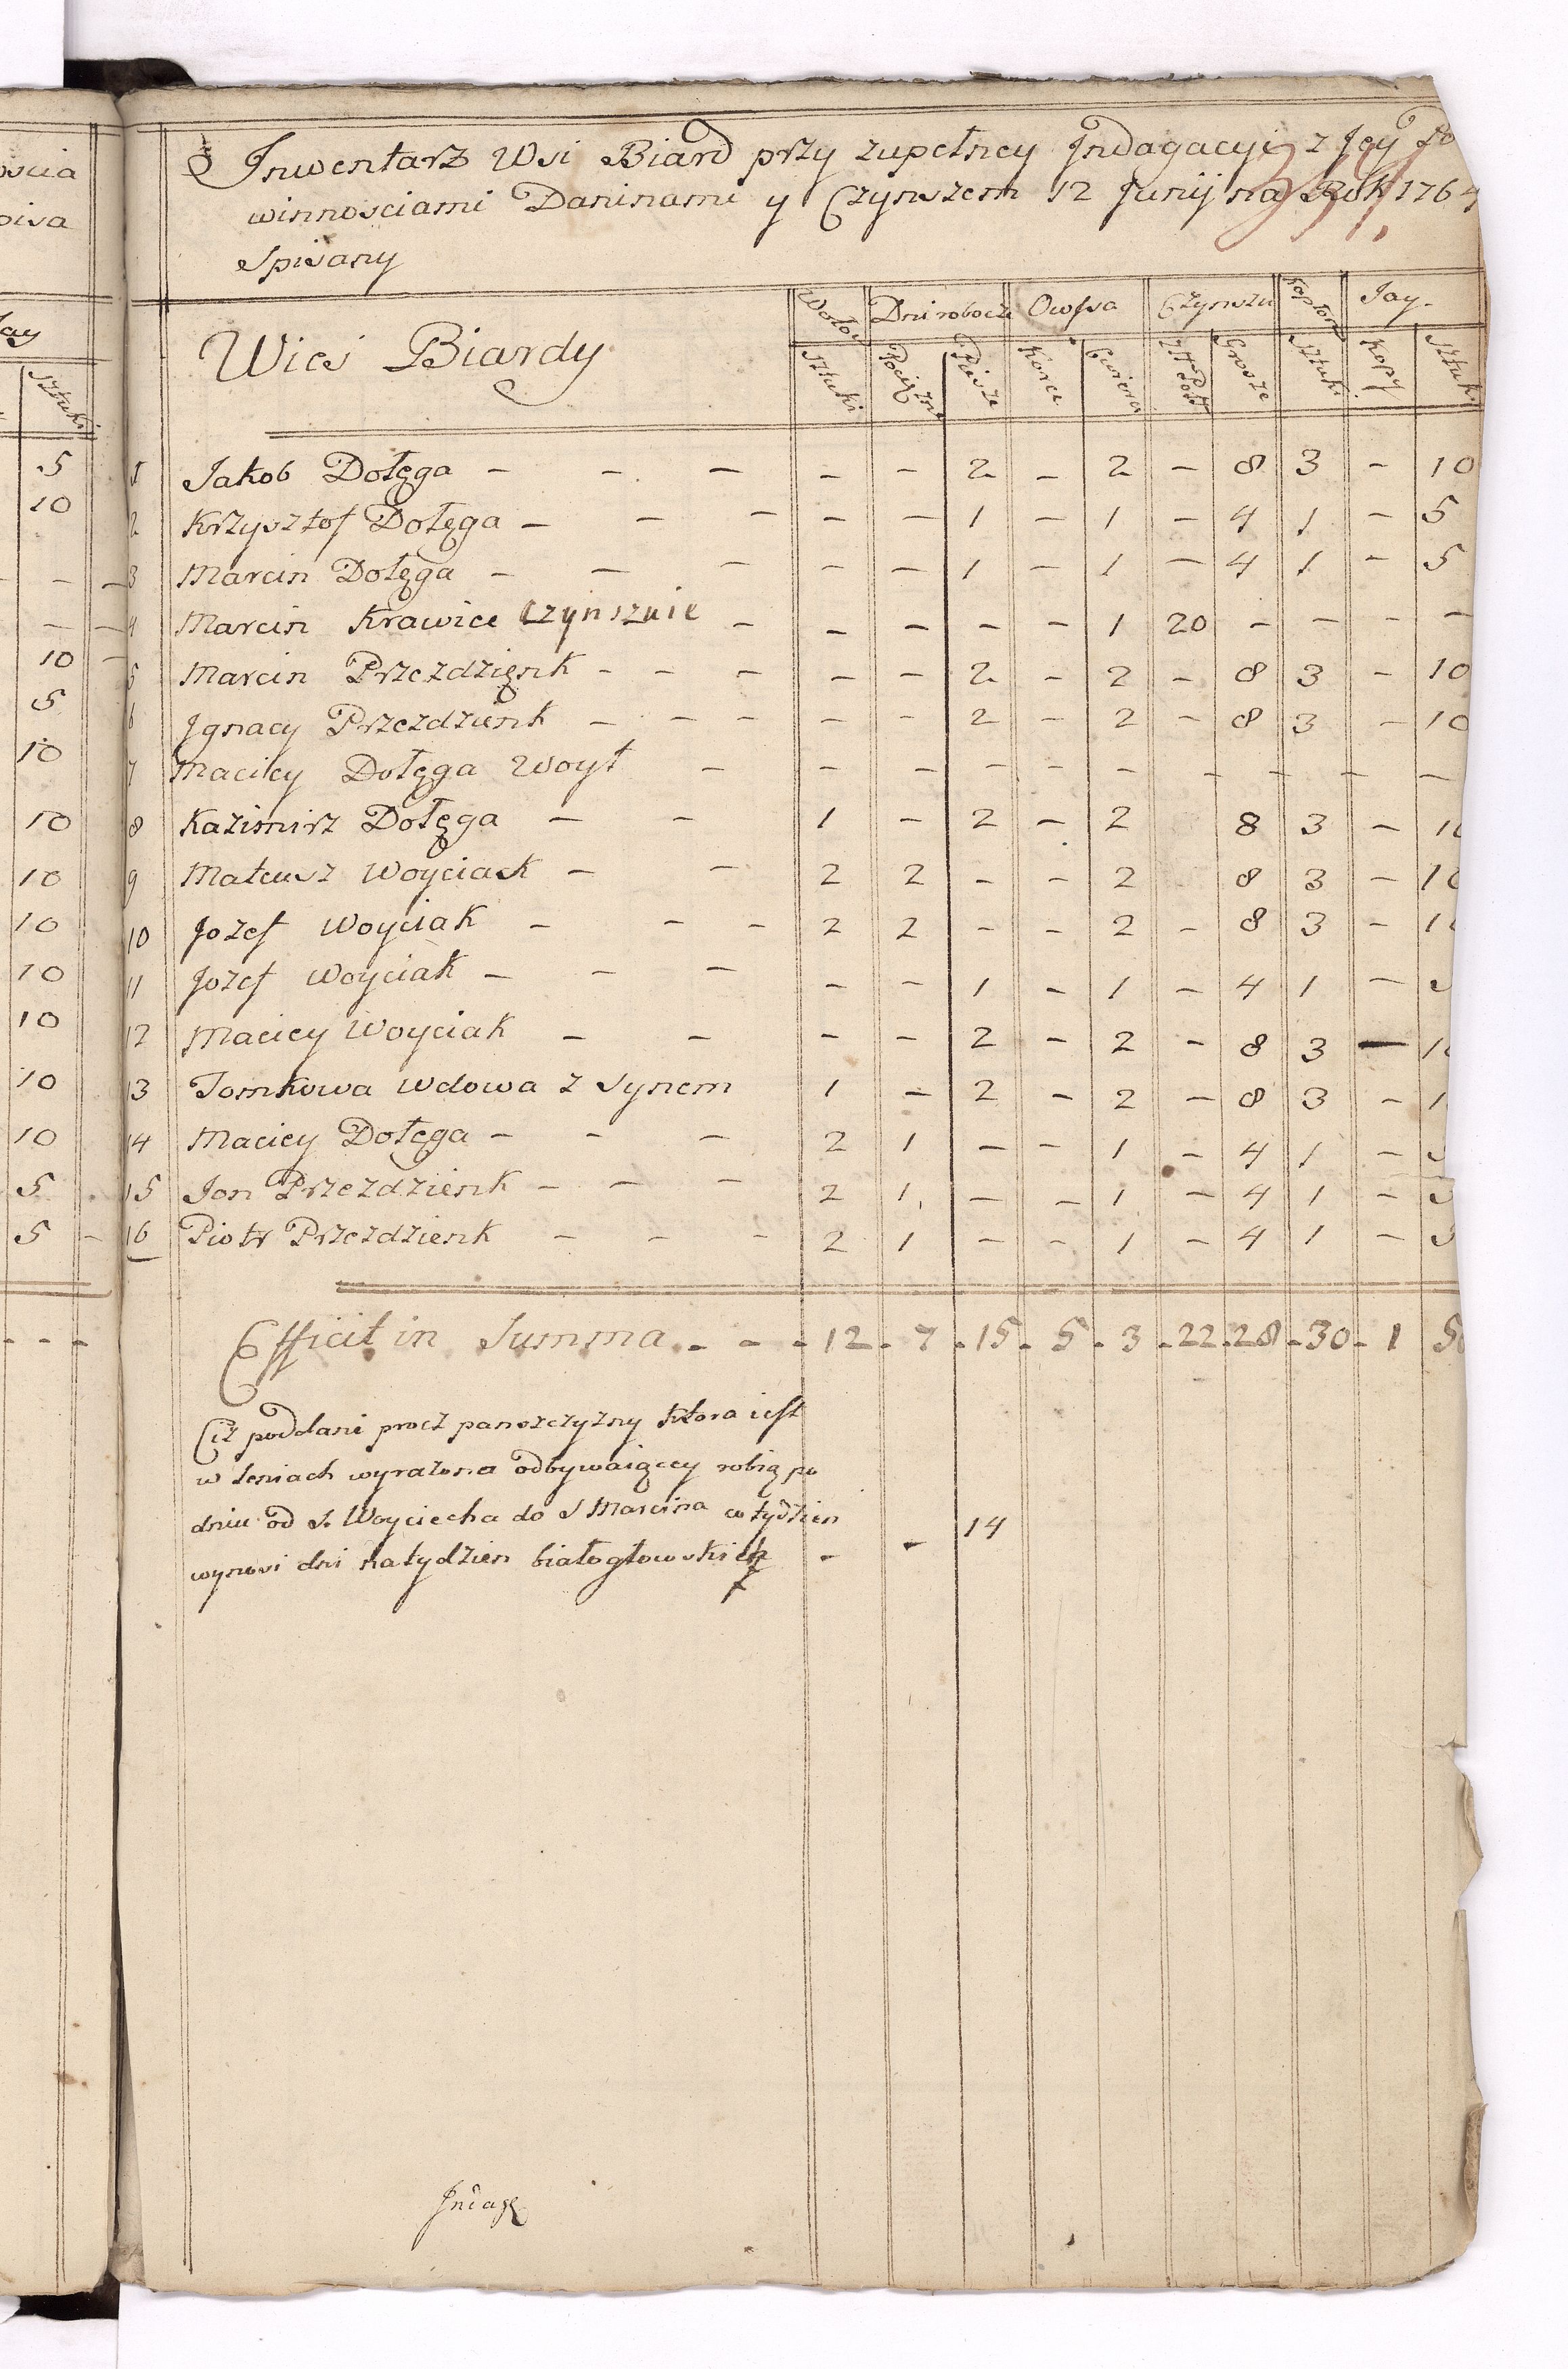 Inwentarz Wsi Biard przy zupełney Jndagacyi z Jey Po
winnosciami Daninami y Czynszem 12 Junij na Rok 1764
Spisany
Wieś Biardy
Wołow Dni robocze Owssa Czynszu Kapłony Jay
Sztuki Pociężne Piesze Korce Cwierci Zł: Pol Grosze Sztuki Kopy Sztuki
1 Jakob Dołęga - - - - - 2 - 2 - 8 3 - 10
2 Krzysztof Dołęga - - - - - 1 - 1 - 4 1 - 5
3 Marcin Dołęga - - - - - 1 - 1 - 4 1 - 5
4 Marcin Krawiec Czynsznie - - - - - 1 20 - - - -
5 Marcin Przezdzięnk - - - - - 2 - 2 - 8 3 - 10
6 Jgnacy Przezdzienk - - - - - 2 - 2 - 8 3 - 10
7 Maciey Dołęga Woyt - - - - - - - - - -
8 Kazimirz Dołęga - - 1 - 2 - 2 8 3 - 10
9 Mateusz Woyciack - - 2 2 - - 2 8 3 - 10
10 Jozef Woyciak - - - 2 2 - - 2 - 8 3 - 10
11 Jozef Woyciak - - - - - 1 - 1 - 4 1 - 5
12 Maciey Woyciak - - - - 2 - 2 - 8 3 - 10
13 Tomkowa wdowa z synem 1 - 2 - 2 - 8 3 - 1
14 Maciey Dołęga - - - 2 1 - - 1 - 4 1 - 5
15 Jon Przezdzienk - - - 2 1 - - 1 - 4 1 - 5
16 Piotr Przezdzienk - - - 2 1 - - 1 - 4 1 - 5
Efficit in Summa - - - 12 - 7 - 15 - 5 - 3 - 22 - 28 - 30 - 1 50
Ciż poddani procz panszczyzny ktora iest
w dniach wyrażona odbywaiącey robią po
dniu od S. Woyciecha do S Marcina w tydzien
wynosi dni na tydzien białogłowskich - - 14